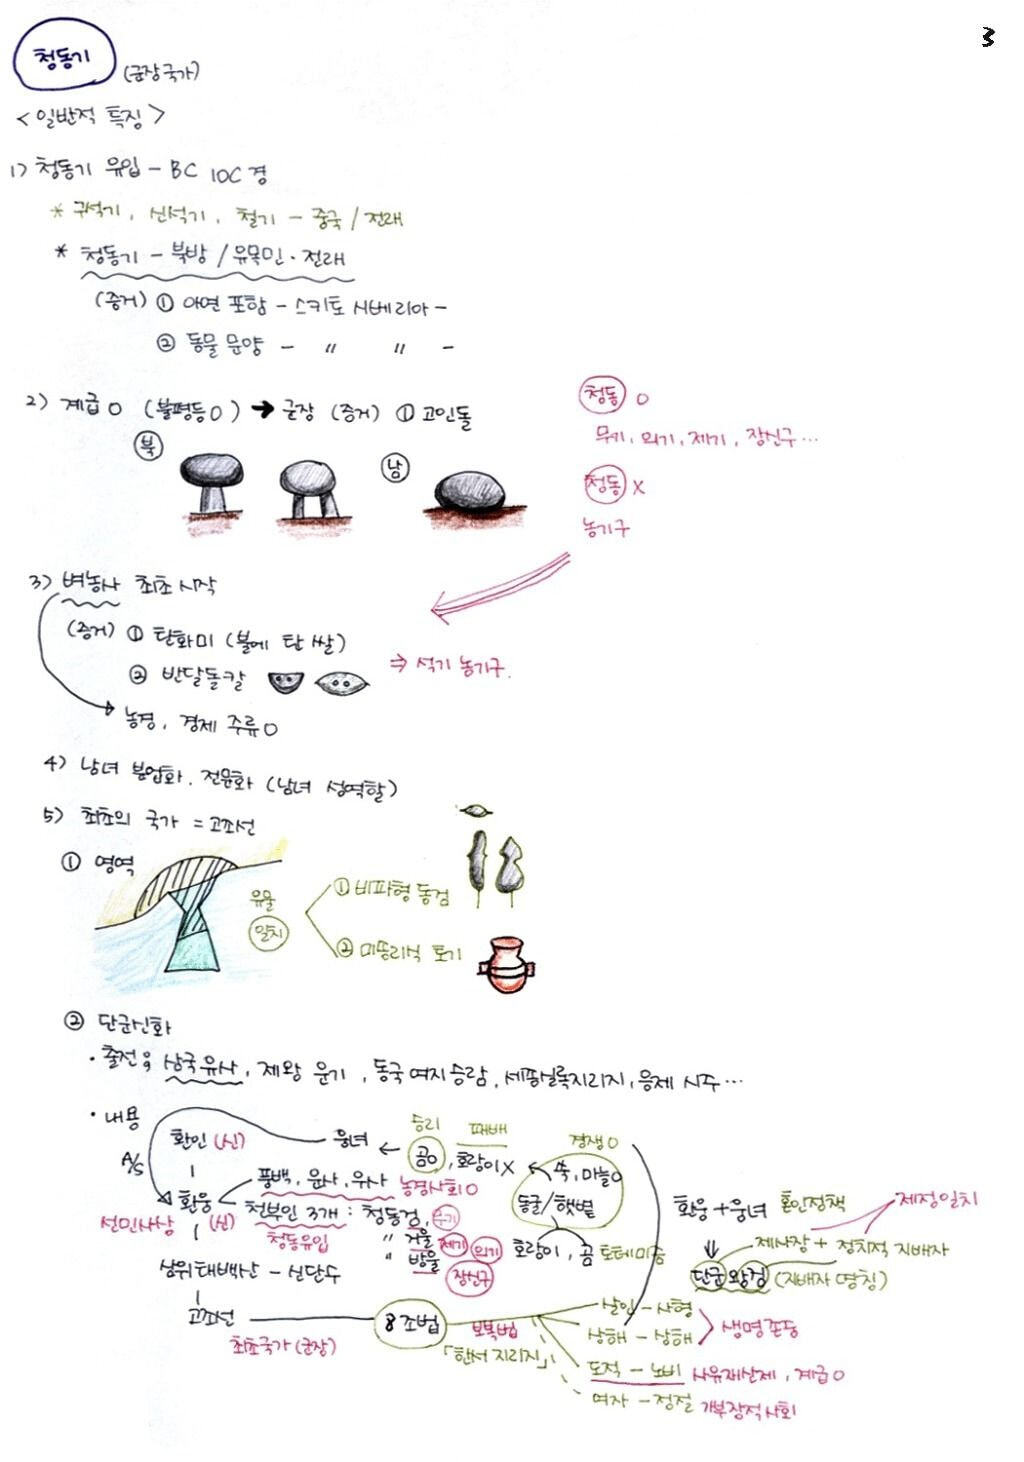 3
청동기 (군장국가)
<일반적 특징>
1) 청동기 유입 - BC 10C 경
* 구석기, 신석기, 철기 - 중국 / 전래
* 청동기 - 북방 / 유목민·전래
(증거) ① 아연 포함 - 스키토 시베리아 -
② 동물 문양 - 〃 〃 -
2) 계급 O (불평등 O) → 군장 (증거) ① 고인돌
북
남
청동 O
무기, 의기, 제기, 장신구...
청동 X
농기구
3) 벼농사 최초 시작
(증거) ① 탄화미 (불에 탄 쌀)
② 반달돌칼
⇒ 석기 농기구.
농경, 경제 주류 O
4) 남녀 분업화. 전문화 (남녀 성역할)
5) 최초의 국가 = 고조선
① 영역
유물
일치
① 비파형 동검
② 미송리식 토기
② 단군신화
· 출전; 삼국유사, 제왕 운기, 동국여지승람, 세종실록지리지, 응제 시주...
· 내용
A/S
환인 (신)
웅녀 ← 곰O, 호랑이X
승리 패배
경생O
쑥, 마늘O
동굴/햇볕
호랑이, 곰 토테미즘
환웅 (신)
선민사상
풍백, 운사, 우사 농경사회 O
천부인 3개 : 청동검, 무기
청동유입
〃 거울 제기 의기
〃 방울 장신구
삼위태백산 - 신단수
환웅 + 웅녀 혼인정책
제정일치
제사장 + 정치적 지배자
단군 왕검 (지배자 명칭)
고조선
최초국가 (군장)
8조법
보복법
「한서 지리지」
살인 - 사형
상해 - 상해
생명존중
도적 - 노비 사유재산제, 계급 O
여자 - 정절 가부장적 사회